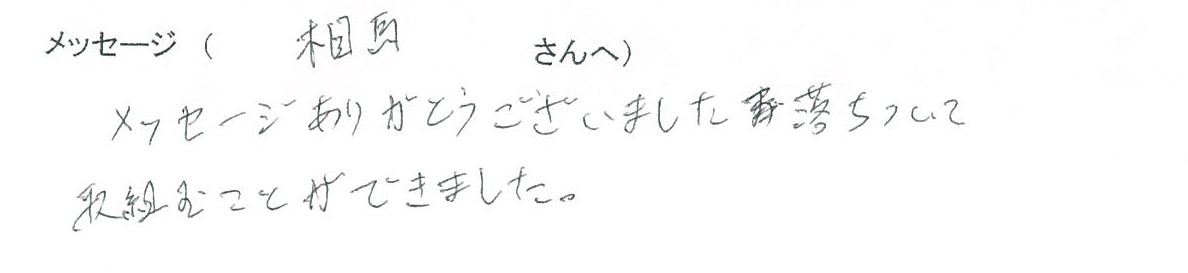 メッセージ（ 相馬 さんへ）
メッセージありがとうございました 落ちついて
取組むことができました。